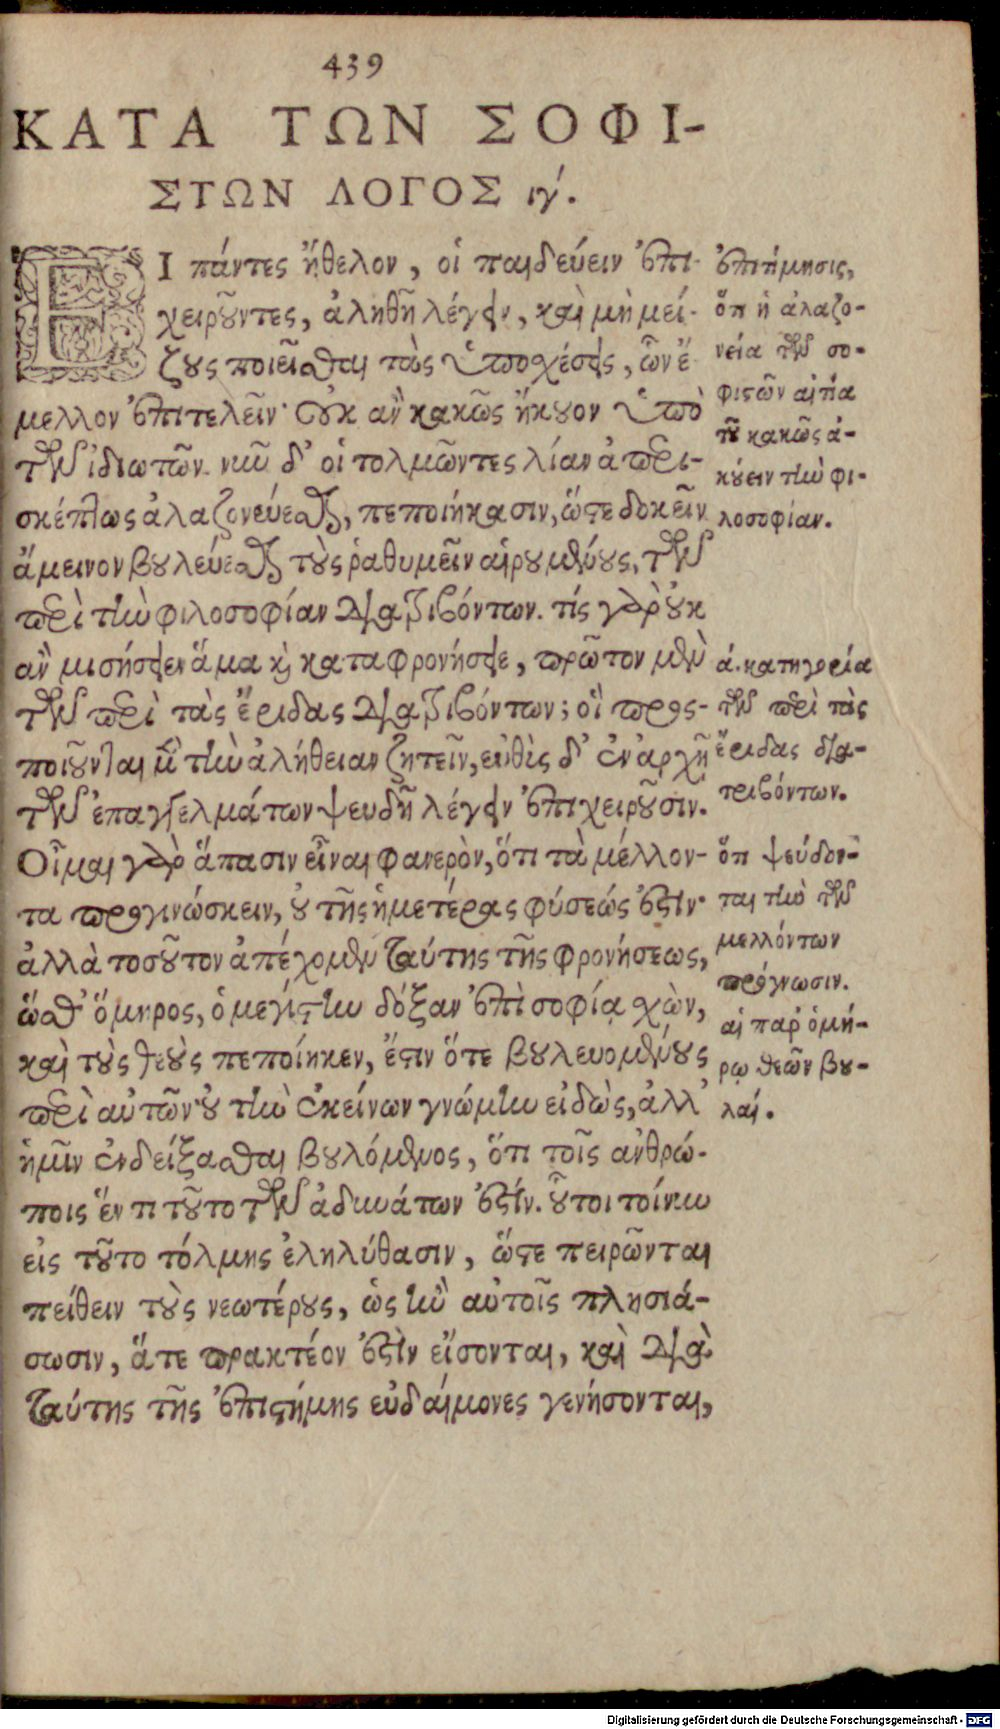 439
ΚΑΤΑ ΤΩΝ ΣΟΦΙ-
ΣΤΩΝ ΛΟΓΟΣ ιγ´.
ΕΙ πάντες ἤθελον, οἱ παιδεύειν ἐπι-
χειροῦντες, ἀληθῆ λέγειν, καὶ μὴ μεί-
ζους ποιεῖσθαι τὰς ὑποσχέσεις, ὧν ἔ-
μελλον ἐπιτελεῖν· οὐκ ἂν κακῶς ἤκουον ὑπὸ
τῶν ἰδιωτῶν. νῦν δ' οἱ τολμῶντες λίαν ἀπερι-
σκέπτως ἀλαζονεύεσθαι, πεποιήκασιν, ὥστε δοκεῖν
ἄμεινον βουλεύεσθαι τοὺς ῥαθυμεῖν αἱρουμένους, τῶν
περὶ τὴν φιλοσοφίαν διατριβόντων. τίς γὰρ οὐκ
ἂν μισήσειεν ἅμα καὶ καταφρονήσειε, πρῶτον μὲν
τῶν περὶ τὰς ἔριδας διατριβόντων; οἳ προς-
ποιοῦνται μὲν τὴν ἀλήθειαν ζητεῖν, εὐθὺς δ' ἐν ἀρχῇ
τῶν ἐπαγγελμάτων ψευδῆ λέγειν ἐπιχειροῦσιν.
Οἶμαι γὰρ ἅπασιν εἶναι φανερὸν, ὅτι τὰ μέλλον-
τα προγινώσκειν, οὐ τῆς ἡμετέρας φύσεώς ἐστιν·
ἀλλὰ τοσοῦτον ἀπέχομεν ταύτης τῆς φρονήσεως,
ὥσθ' ὅμηρος, ὁ μεγίστην δόξαν ἐπὶ σοφίᾳ σχὼν,
καὶ τοὺς θεοὺς πεποίηκεν, ἔστιν ὅτε βουλευομένους
περὶ αὐτῶν· οὐ τὴν ἐκείνων γνώμην εἰδὼς, ἀλλ'
ἡμῖν ἐνδείξασθαι βουλόμενος, ὅτι τοῖς ἀνθρώ-
ποις ἕν τι τοῦτο τῶν ἀδυνάτων ἐστίν. οὗτοι τοίνυν
εἰς τοῦτο τόλμης ἐληλύθασιν, ὥστε πειρῶνται
πείθειν τοὺς νεωτέρους, ὡς ἢν αὐτοῖς πλησιά-
σωσιν, ἅτε πρακτέον ἐστὶν εἴσονται, καὶ διὰ
ταύτης τῆς ἐπιστήμης εὐδαίμονες γενήσονται,
ἐπιτίμησις,
ὅτι ἡ ἀλαζο-
νεία τῶν σο-
φιστῶν αἰτία
τοῦ κακῶς ἀ-
κούειν τὴν φι-
λοσοφίαν.
ά. κατηγορία
τῶν περὶ τὰς
ἔριδας δια-
τριβόντων.
ὅτι ψεύδον-
ται τὴν τῶν
μελλόντων
πρόγνωσιν.
αἱ παρ' ὁμή-
ρῳ θεῶν βου-
λαί.
Digitalisierung gefördert durch die Deutsche Forschungsgemeinschaft - DFG